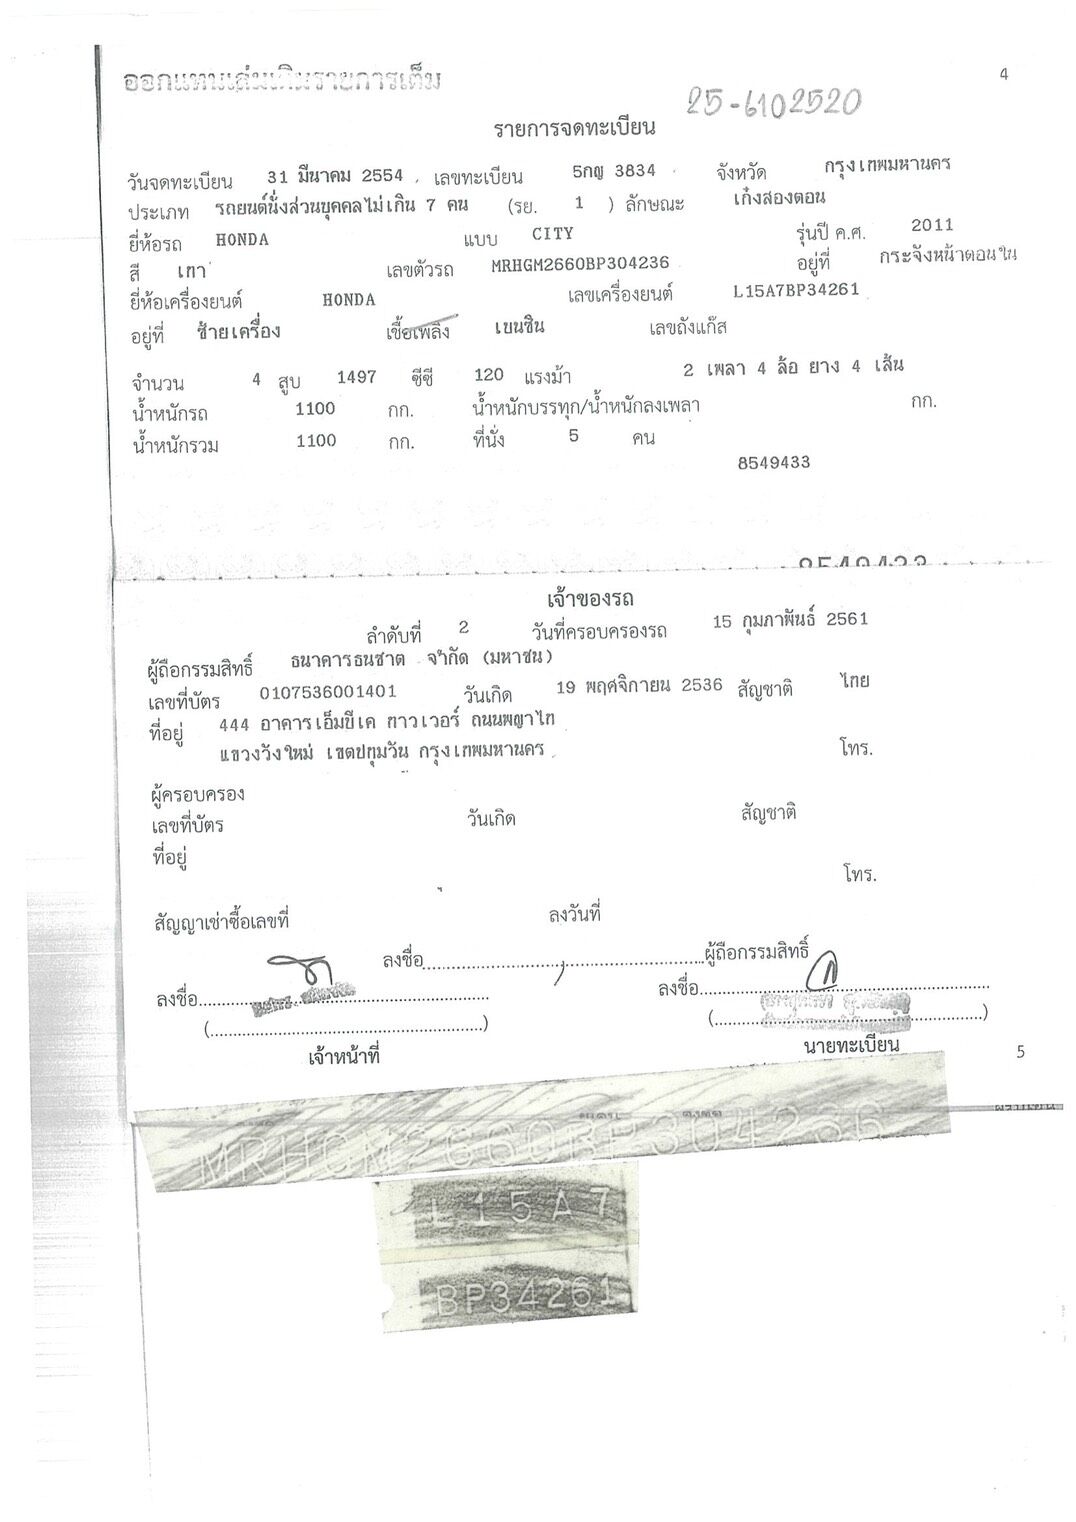 ออกแทนเล่มเดิมรายการเต็ม
4
25-6102520
รายการจดทะเบียน
วันจดทะเบียน 31 มีนาคม 2554 เลขทะเบียน 5กญ 3834 จังหวัด กรุงเทพมหานคร
ประเภท รถยนต์นั่งส่วนบุคคลไม่เกิน 7 คน (รย. 1 ) ลักษณะ เก๋งสองตอน
ยี่ห้อรถ HONDA แบบ CITY รุ่นปี ค.ศ. 2011
สี เทา เลขตัวรถ MRHGM2660BP304236 อยู่ที่ กระจังหน้าตอนใน
ยี่ห้อเครื่องยนต์ HONDA เลขเครื่องยนต์ L15A7BP34261
อยู่ที่ ซ้ายเครื่อง เชื้อเพลิง เบนซิน เลขถังแก๊ส
จำนวน 4 สูบ 1497 ซีซี 120 แรงม้า 2 เพลา 4 ล้อ ยาง 4 เส้น
น้ำหนักรถ 1100 กก. น้ำหนักบรรทุก/น้ำหนักลงเพลา กก.
น้ำหนักรวม 1100 กก. ที่นั่ง 5 คน
8549433
8549433
เจ้าของรถ
ลำดับที่ 2 วันที่ครอบครองรถ 15 กุมภาพันธ์ 2561
ผู้ถือกรรมสิทธิ์ ธนาคารธนชาต จำกัด (มหาชน)
เลขที่บัตร 0107536001401 วันเกิด 19 พฤศจิกายน 2536 สัญชาติ ไทย
ที่อยู่ 444 อาคารเอ็มบีเค ทาวเวอร์ ถนนพญาไท
แขวงวังใหม่ เขตปทุมวัน กรุงเทพมหานคร โทร.
ผู้ครอบครอง
เลขที่บัตร วันเกิด สัญชาติ
ที่อยู่
โทร.
สัญญาเช่าซื้อเลขที่ ลงวันที่
ลงชื่อ ผู้ถือกรรมสิทธิ์
ลงชื่อ ลงชื่อ
( ) ( )
เจ้าหน้าที่ นายทะเบียน
5
MRHGM2660BP304236
L15A7
BP34261